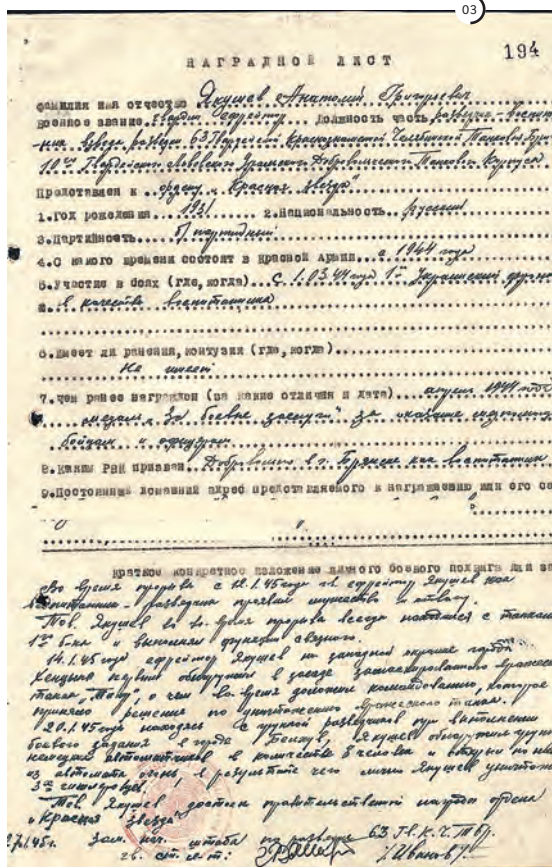 03
194
НАГРАДНОЙ ЛИСТ
фамилия имя отчество Якушев Анатолий Григорьевич
военное звание. Гвардии Ефрейтор... Должность часть, разведчик-воспитан-
-ник взвода разведки 63 Гвардейской Краснознаменной Челябинской Танковой Бриг
10го Гвардейского Львовского Уральского Добровольческого Танкового Корпуса
Представлен к ордену "Красная Звезда"
1. Год рождения 1931 2. Национальность русский
3. Партийность б/партийный
4. С какого времени состоит в Красной Армии с 1944 года
5. Участие в боях (где, когда) с 1.03.44 года 1й Украинский фронт
в качестве воспитанника
6. Имеет ли ранения, контузии (где, когда)
Не имеет
7. Чем ранее награжден (за какие отличия и дата) 1944 года
медаль "За боевые заслуги" за оказание
бойцам и офицерам
8. Каким РВК призван Добровольно в г. Брянске как воспитанник
9. Постоянный домашний адрес представляемого к награждению или его се
Краткое конкретное изложение личного боевого подвига или за
Во время прорыва с 12.1.45 года гв. ефрейтор Якушев как
воспитанник-разведчик проявил мужество и отвагу.
Тов. Якушев во время прорыва всегда находился с танками
1го б-на и выполнял функции связного.
14.1.45 года ефрейтор Якушев на западной окраине города
Хенцины первым обнаружил в засаде замаскированного вражеского
танка, о чем во время доложил командованию, которое
приняло решение по уничтожению вражеского танка.
20.1.45 года находясь с группой разведчиков при выполнении
боевого задания в городе Якушев обнаружил группу
немецких автоматчиков в количестве 8 человек и открыл по ним
из автомата огонь, в результате чего лично Якушев уничтожил
3х гитлеровцев.
Тов. Якушев достоин правительственной награды ордена
"Красная Звезда"
27.1.45г. Зам. нач. штаба по разведке 63 Гв.К.Ч.Тбр.
гв. ст. л-т: /Иванов/.